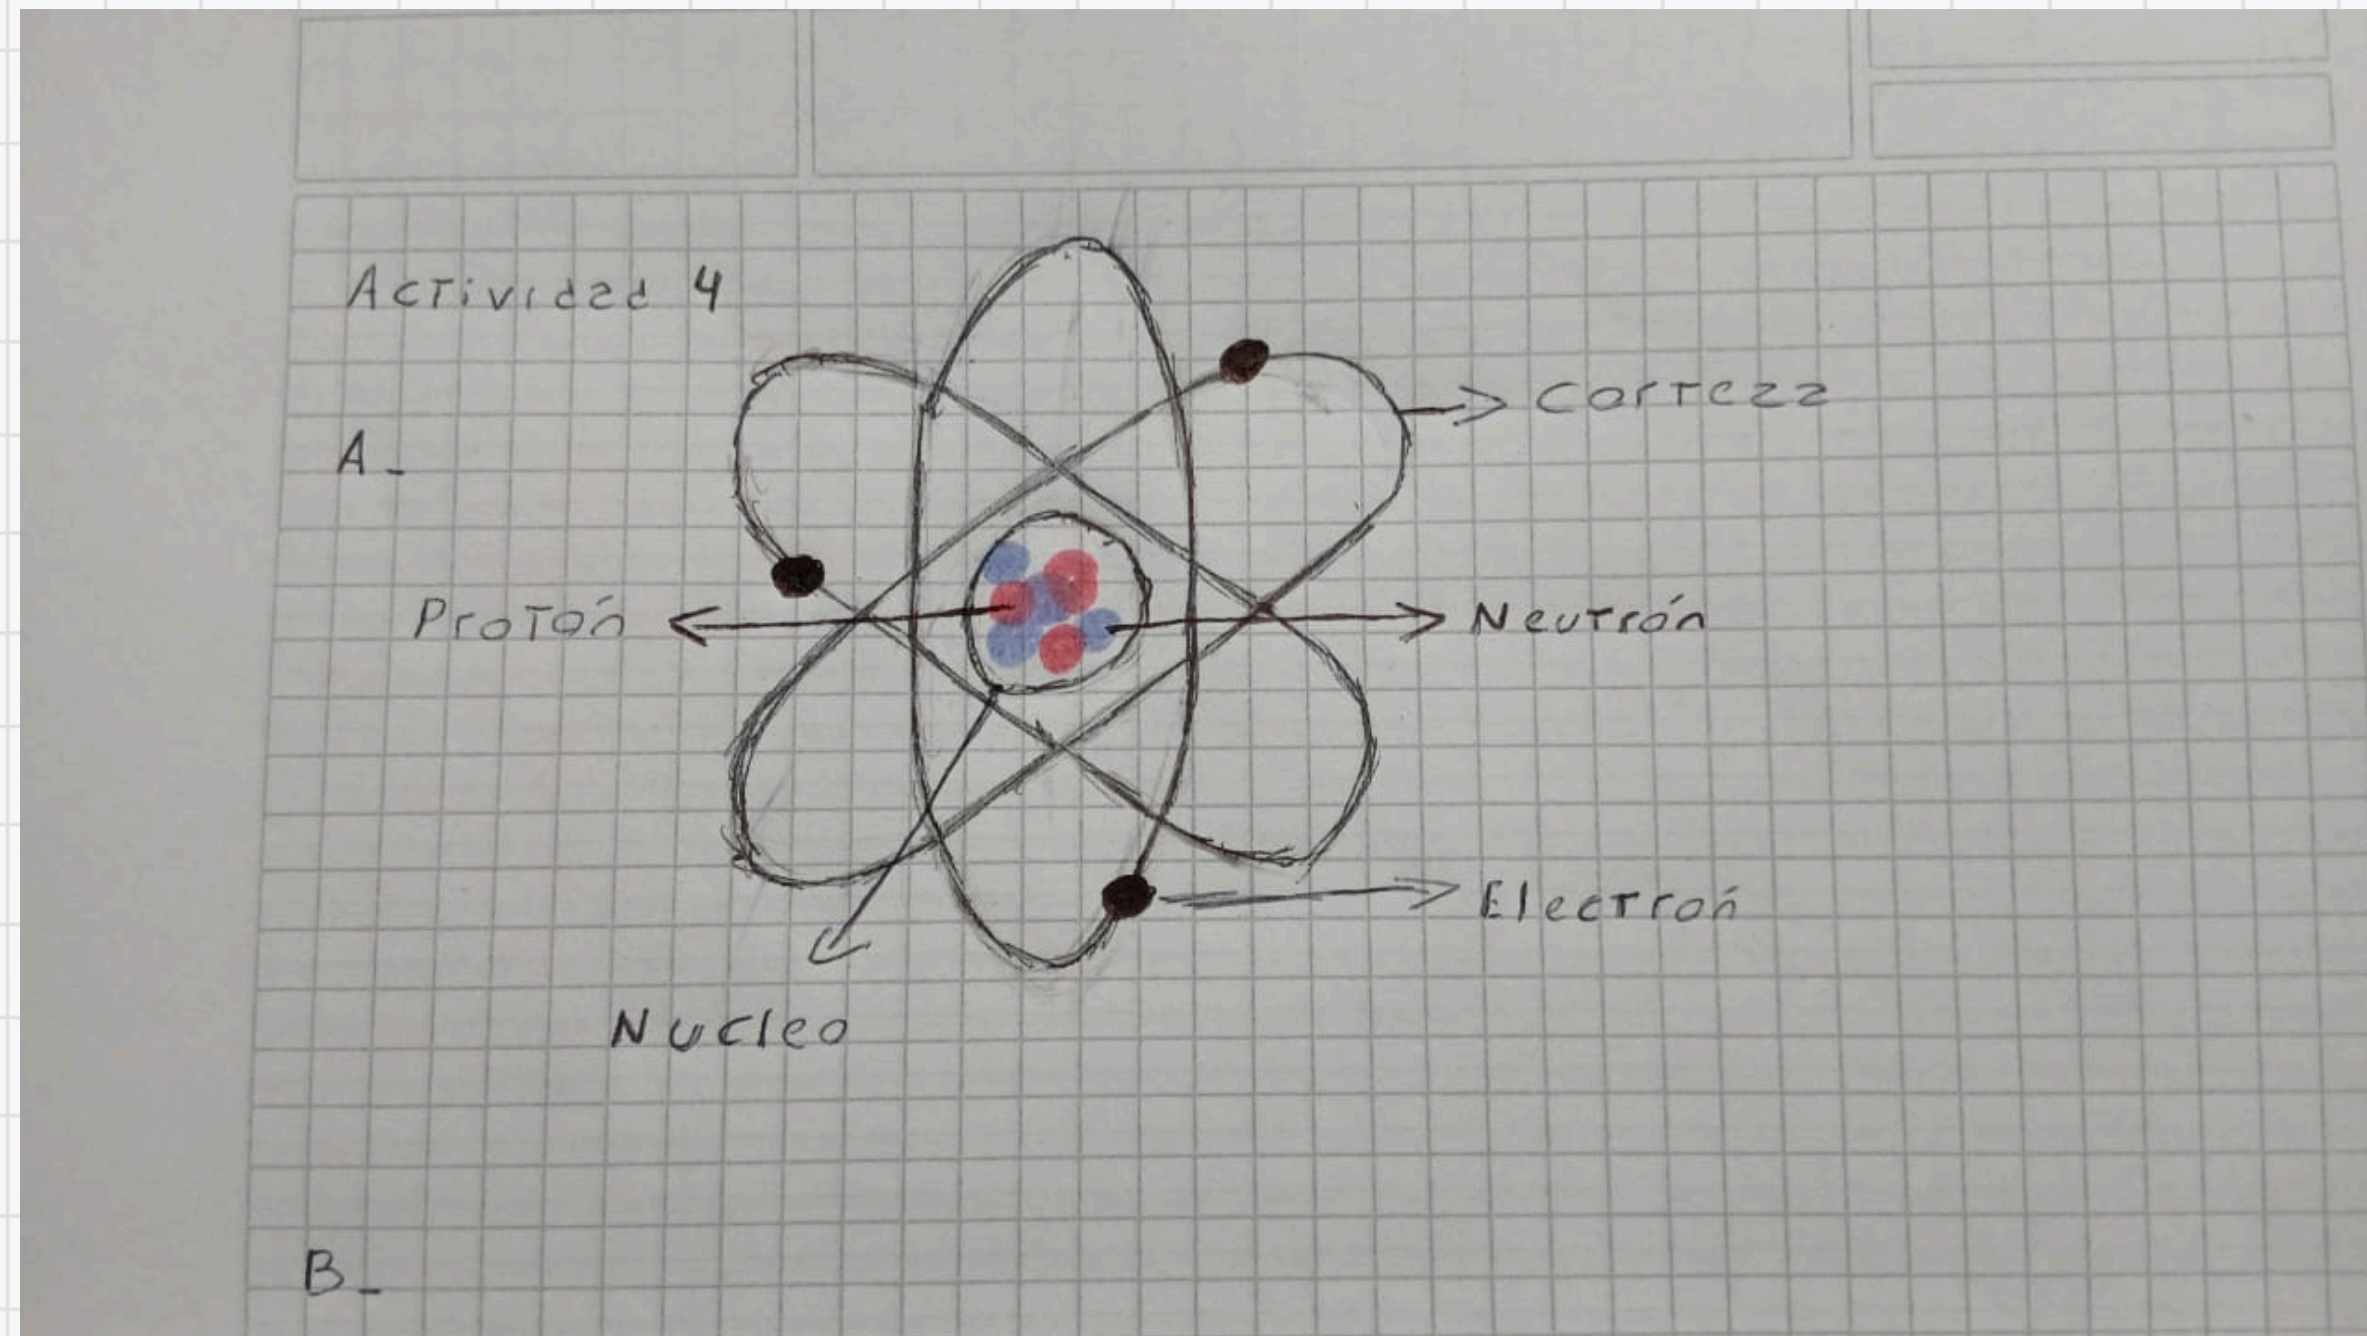 Actividad 4
Corteza
A_
Protón
Neutrón
Electrón
Nucleo
B_